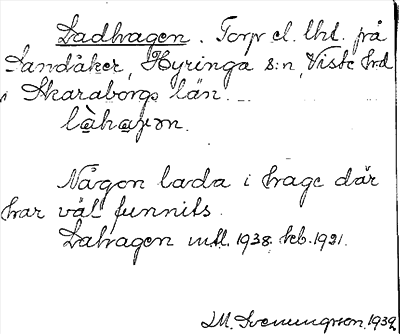 Ladhagen. Torp el. lht. på
Sandåker, Hyringa s:n, Viste hrd
i Skaraborgs län.
làhaɣən.
Någon lada i hage där
har väl funnits.
Lahagen mtl. 1938. keb. 1921.
J.M. Svenungsson. 1939.